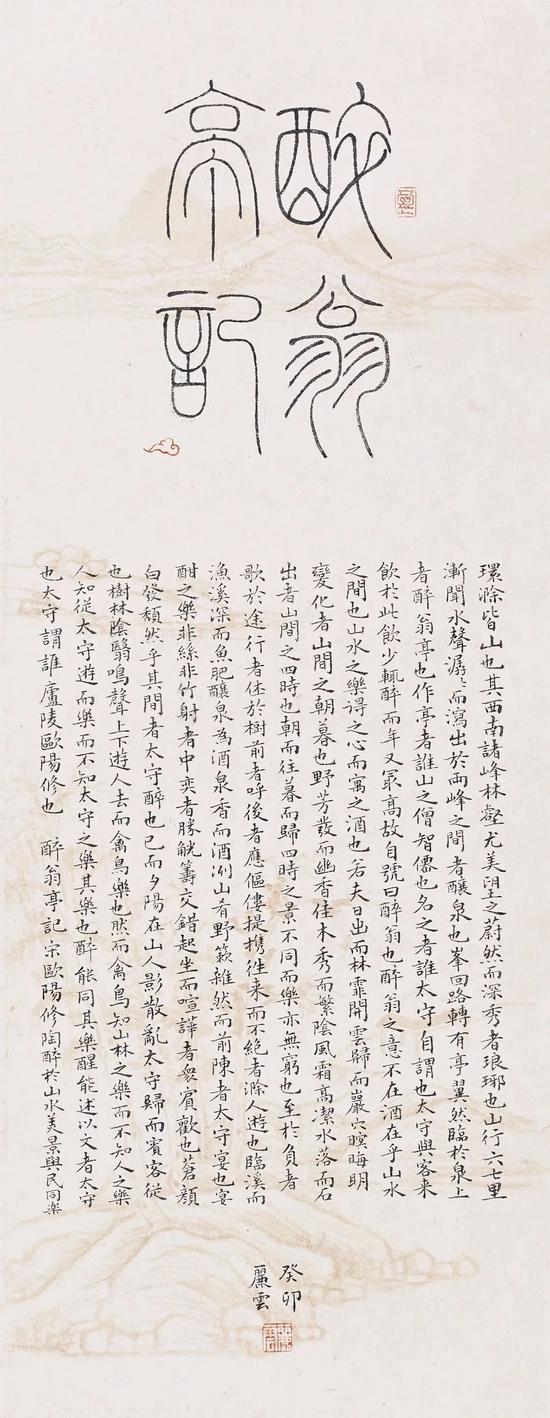 醉翁
亭記
環滁皆山也其西南諸峰林壑尤美望之蔚然而深秀者琅琊也山行六七里
漸聞水聲潺〻而瀉出於兩峰之間者釀泉也峯回路轉有亭翼然臨於泉上
者醉翁亭也作亭者誰山之僧智僊也名之者誰太守自謂也太守與客来
飲於此飲少輒醉而年又冣高故自號曰醉翁也醉翁之意不在酒在乎山水
之間也山水之樂得之心而寓之酒也若夫日出而林霏開雲歸而巖穴暝晦明
變化者山間之朝暮也野芳發而幽香佳木秀而繁陰風霜高潔水落而石
出者山間之四時也朝而往暮而歸四時之景不同而樂亦無窮也至於負者
歌於途行者休於樹前者呼後者應傴僂提攜往来而不絕者滁人遊也臨溪而
漁溪深而魚肥釀泉為酒泉香而酒洌山肴野蔌雜然而前陳者太守宴也宴
酣之樂非絲非竹射者中奕者勝觥籌交錯起坐而喧譁者衆賓歡也蒼顏
白發頹然乎其間者太守醉也已而夕陽在山人影散亂太守歸而賓客從
也樹林陰翳鳴聲上下遊人去而禽鳥樂也然而禽鳥知山林之樂而不知人之樂
人知從太守遊而樂而不知太守之樂其樂也醉能同其樂醒能述以文者太守
也太守謂誰廬陵歐陽修也 醉翁亭記宋歐陽修陶醉於山水美景與民同樂
癸卯
麗雲